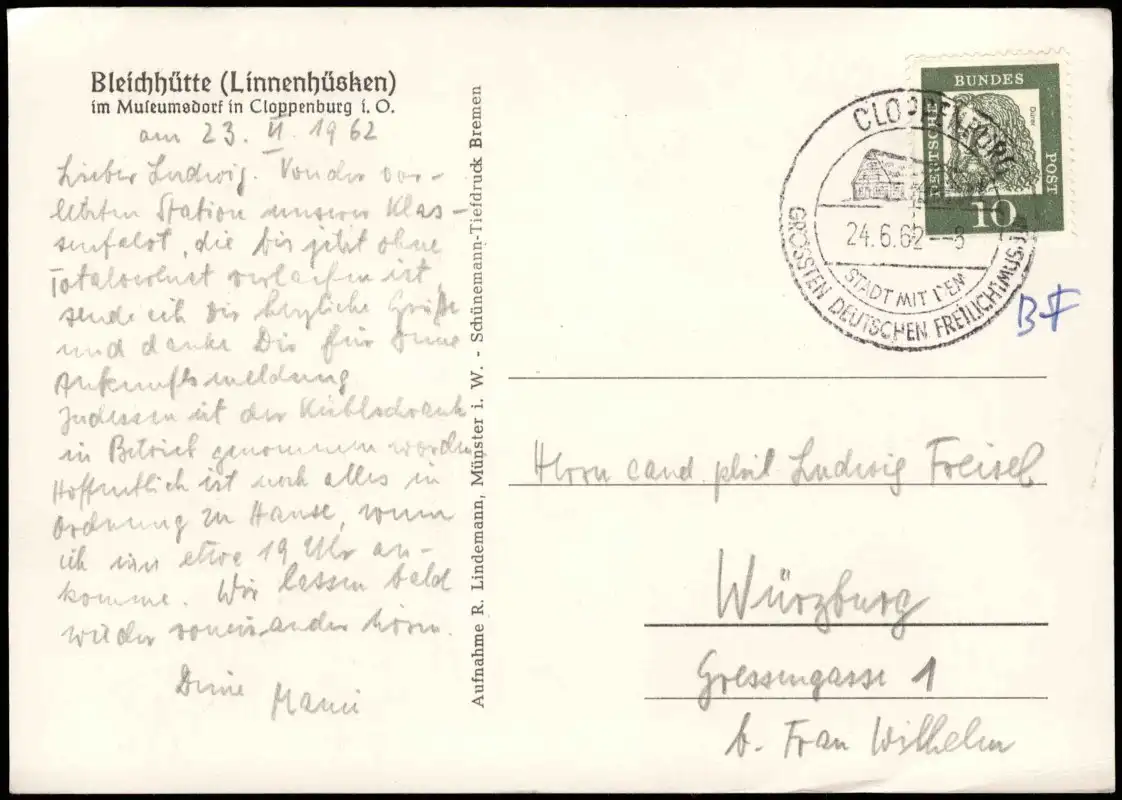 Bleichhütte (Linnenhüsken)
im Museumsdorf in Cloppenburg i. O.
am 23. VI. 1962
Lieber Ludwig. Von der vor-
letzten Station unserer Klas-
senfahrt, die bis jetzt ohne
Totalverlust verlaufen ist
sende ich Dir herzliche Grüße
und danke Dir für Deine
Ankunftsmeldung
Indessen ist der Kühlschrank
in Betrieb genommen worden
Hoffentlich ist noch alles in
Ordnung zu Hause, wenn
ich um etwa 19 Uhr an-
komme. Wir lassen bald
wieder voneinander hören.
Deine Mami
Aufnahme R. Lindemann, Münster i. W. - Schünemann-Tiefdruck Bremen
DEUTSCHE BUNDES POST
Dürer
10
CLOPPENBURG
24.6.62--8
STADT MIT DEM
GRÖSSTEN DEUTSCHEN FREILICHTMUSEUM
BF
Herrn cand phil Ludwig Freisel
Würzburg
Gressengasse 1
b. Frau Wilhelm